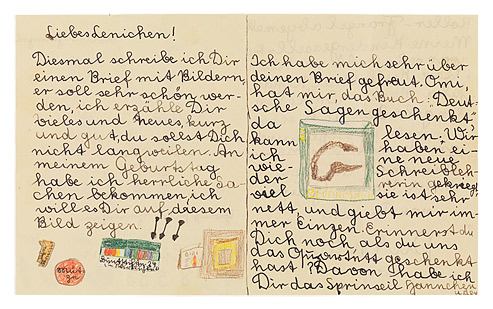 Liebes Lenichen!
Diesmal schreibe ich Dir
einen Brief mit Bildern,
er soll sehr schön wer-
den, ich erzähle Dir
vieles und neues, kurz
und gut, du sollst Dich
nicht langweilen. An
meinem Geburtstag
habe ich herrliche Sa-
chen bekommen, ich
will es Dir auf diesem
Bild zeigen.
Ich habe mich sehr über
deinen Brief gefreut. Omi,
hat mir, das Buch: Deut-
sche Sagen geschenkt,
da lesen. Wir
kann haben ei-
ich ne neue
wie Schreibleh-
der rerin gekriegt
viel sie ist sehr
nett, und giebt mir im-
mer Einzen. Erinnerst du
Dich noch als du uns
das Quartett geschenkt
hast? Davon habe ich
Dir das Sprinseil